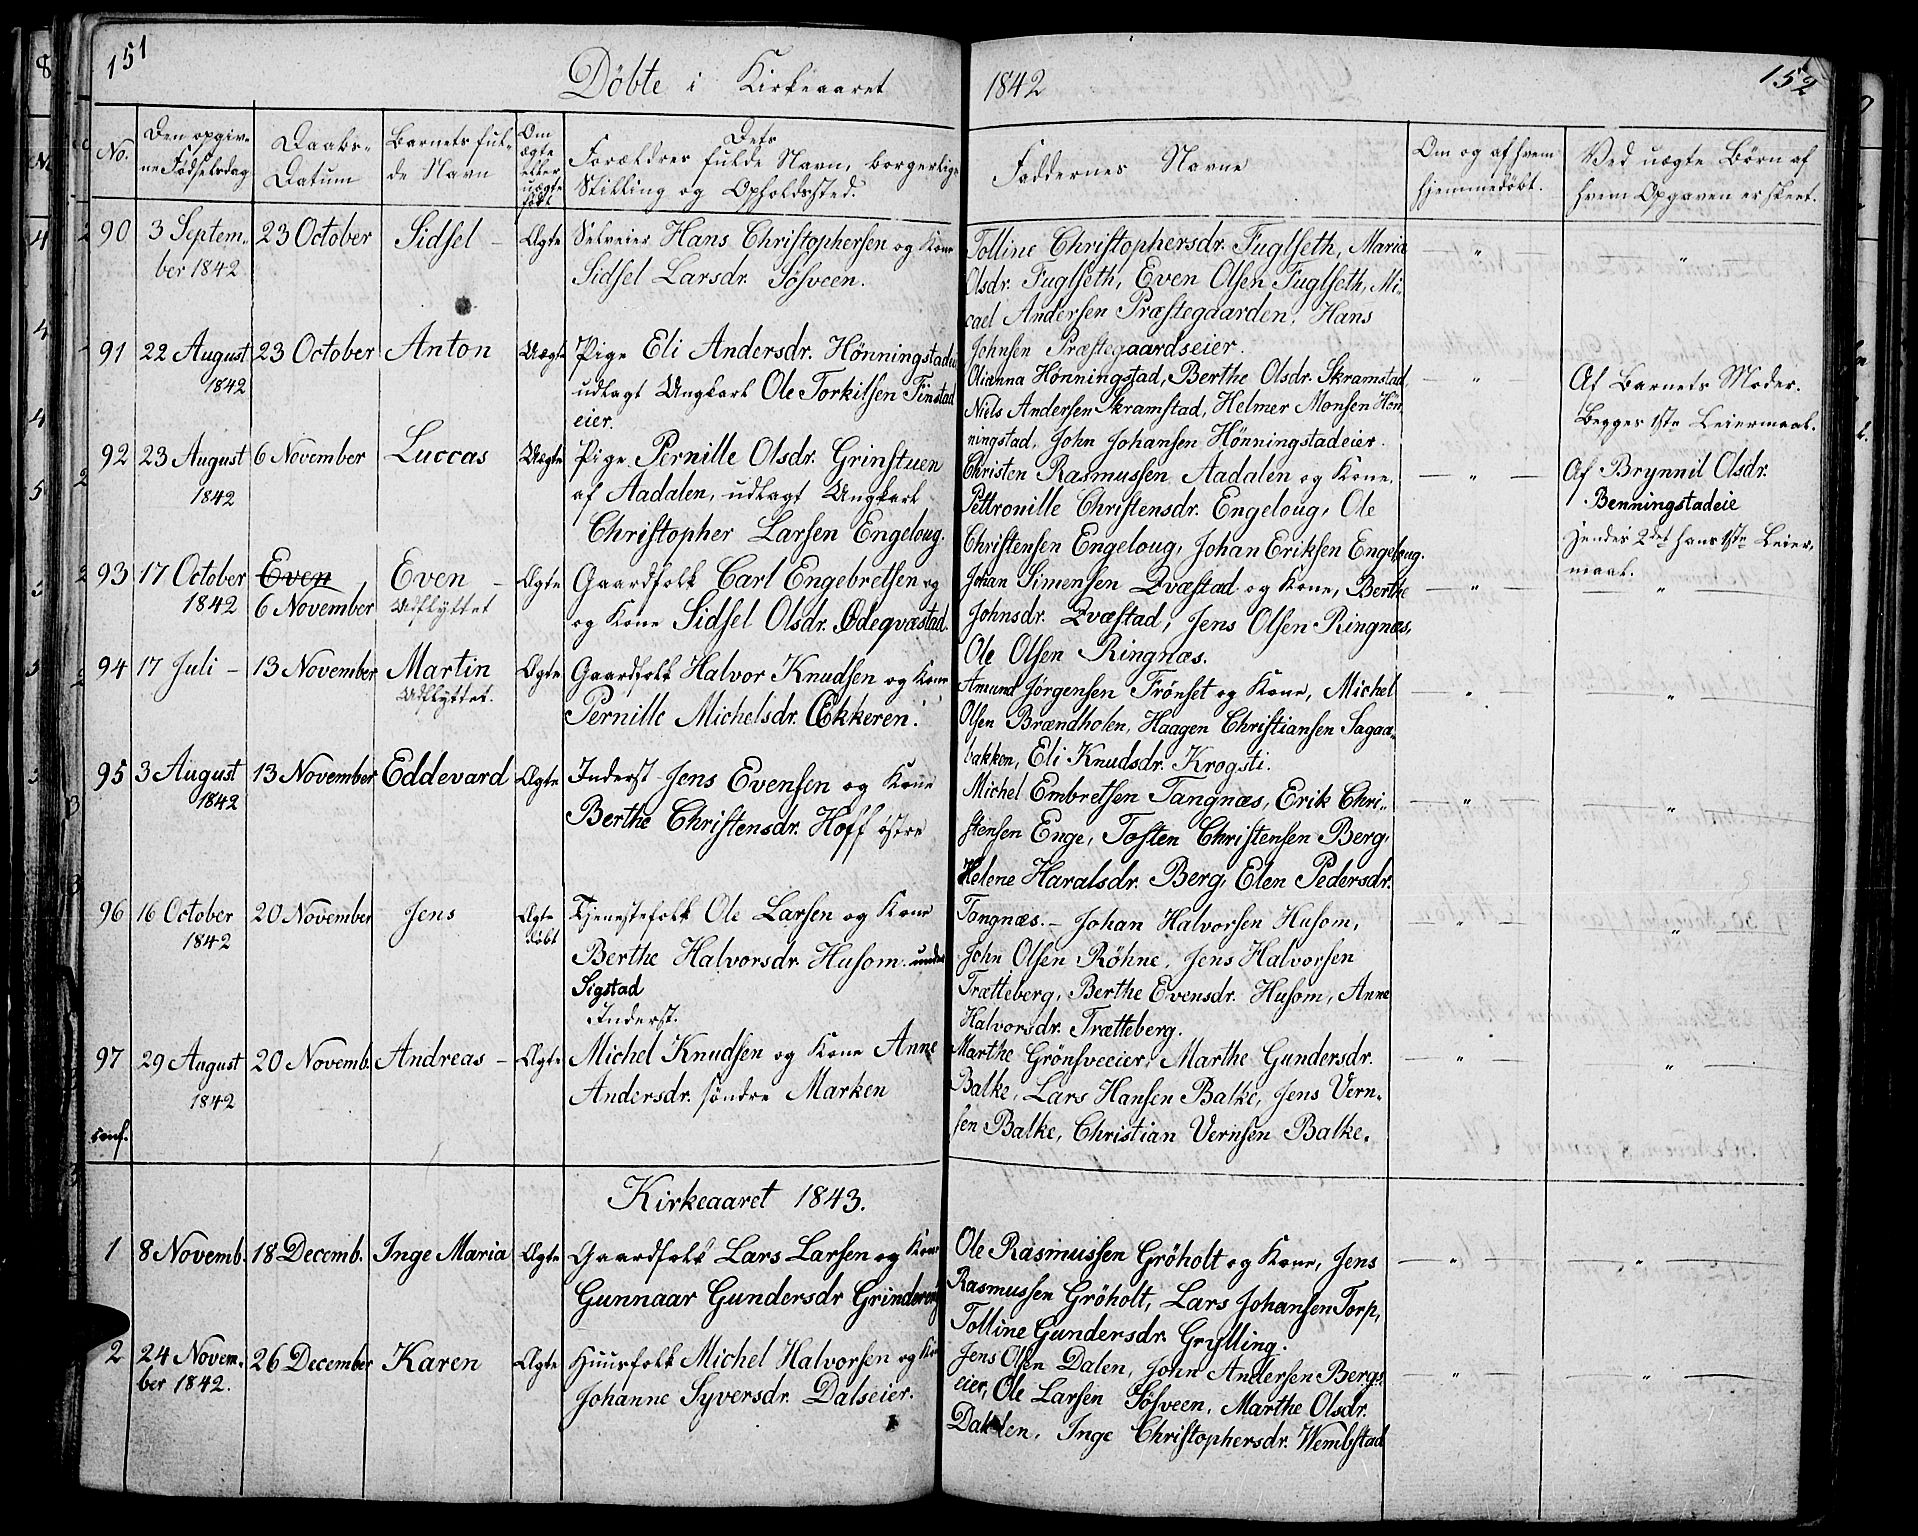 151
Döbte i Kirkeaaret
1842
152
No.
Den opgiv-
ne Fødselsdag
Daabs-
Datum
Barnets ful-
de Navn
Om
ægte
eller
uægte
født
Dets
Forældres fulde Navn, borgerlige
Stilling og Opholdssted.
Faddernes Navne
Om og af hvem
hjemmedøbt.
Ved uægte Børn af
hvem Opgaven er skeet.
90 3 Septem- 23 October Sidsel - Ægte Selveier Hans Christophersen og Kone
ber 1842 Sidsel Larsdr. Sösveen.
Tolline Christophersdr. Fuglseth, Maria
Olsdr. Fuglseth, Even Olsen Fuglseth, Mi-
cael Andersen Præstegaarden. Hans
Johnsen Præstegaardseier.
91 22 August 23 October Anton Uægte Pige Eli Andersdr. Hönningstadei
1842 udlagt Ungkarl Ole Torkilsen Finstad
eier.
Olianna Hönningstad, Berthe Olsdr. Skramstad,
Niels Andersen Skramstad, Helmer Monsen Hön-
ningstad, John Johansen Hönningstadeier.
Af Barnets Moder.
Begges 1ste Leiermaal.
92 23 August 6 November Luccas Uægte Pige Pernille Olsdr. Grinstuen
1842 af Aadalen, udlagt Ungkarl
Christopher Larsen Engeloug.
Christen Rasmussen Aadalen og Kone.
Pettronille Christensdr. Engeloug, Ole
Christensen Engeloug, Johan Eriksen Engeloug.
Af Brynnil Olsdr.
Benningstadeie
Hendes 2det hans 1ste Leier-
maal.
93 17 October Even Even - Ægte Gaardfolk Carl Engebretsen og
1842 6 November Udflyttet og Kone Sidsel Olsdr. Ödeqvæstad.
Johan Simensen Qvæstad og Kone, Berthe
Johnsdr. Qvæstad, Jens Olsen Ringnæs,
Ole Olsen Ringnæs.
94 17 Juli - 13 November Martin Ægte Gaardfolk Halvor Knudsen og Kone
Udflyttet. Pernille Michelsdr. Ækkeren.
Amund Jörgensen Frönset og Kone, Michel
Olsen Brændholen, Haagen Christiansen Sagaa-
bakken, Eli Knudsdr. Krogsti.
95 3 August 13 November Eddevard Ægte Inderst Jens Evensen og Kone
1842 Berthe Christensdr. Hoff östre
Michel Embretsen Tangnæs, Erik Chri-
stensen Enge, Tosten Christensen Berg,
Helene Haralsdr. Berg, Elen Pedersdr.
Tangnæs. -
96 16 October 20 November Jens Ægte Tjenestefolk Ole Larsen og Kone
1842 født Berthe Halvorsdr. Husom under
Sigstad
Johan Halvorsen Husom,
John Olsen Röhne, Jens Halvorsen
Trætteberg, Berthe Evensdr. Husom, Anne
Halvorsdr. Trætteberg.
Inderst.
97 29 August 20 Novemb. Andreas - Ægte Michel Knudsen og Kone Anne
1842 Andersdr. söndre Marken
conf.
Marthe Grönsveeier, Marthe Gundersdr.
Balke, Lars Hansen Balke, Jens Vern-
sen Balke, Christian Vernsen Balke.
Kirkeaaret 1843.
1 8 Novemb. 18 Decemb. Inge Maria Ægte Gaardfolk Lars Larsen og Kone
Gunnaar Gundersdr Grindereng
Ole Rasmussen Gröholt og Kone, Jens
Rasmussen Gröholt, Lars Johansen Torp,
Tolline Gundersdr. Grylling.
2 24 Novem- 26 December Karen Ægte Huusfolk Michel Halvorsen og Ko
ber 1842. Johanne Syversdr. Dalseier.
Jens Olsen Dalen, John Andersen Bergs-
eier, Ole Larsen Sösveen, Marthe Olsdr.
Dalen, Inge Christophersdr. Wembstad